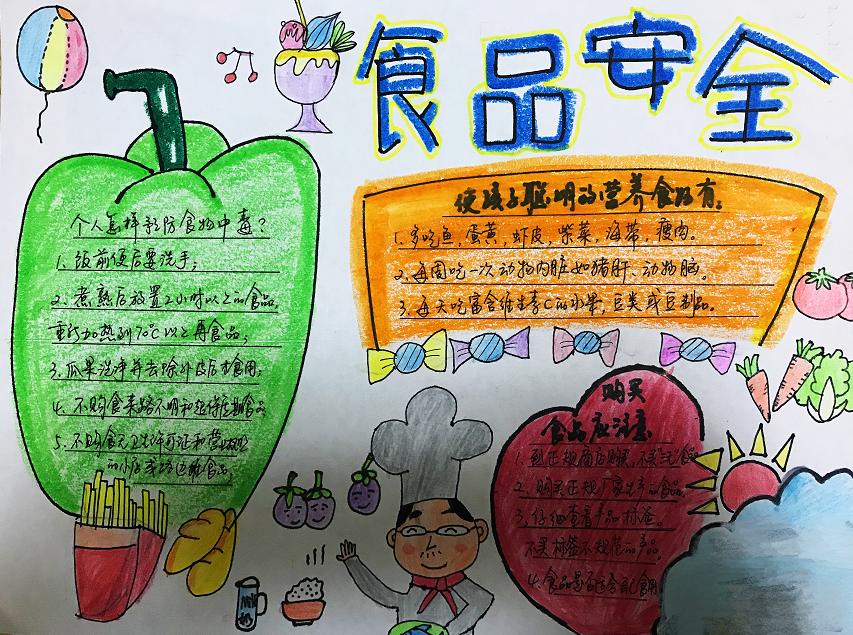 食品安全
个人怎样预防食物中毒？
1、饭前便后要洗手；
2、煮熟后放置2小时以上的食品，
重新加热到70℃以上再食品；
3、瓜果洗净并去除外皮后才食用；
4、不购食来路不明和超保质期食品；
5、不购食无卫生许可证和营业
的小店或路边摊食品。
使孩子聪明的营养食物有：
1、多吃鱼，蛋黄，虾皮，紫菜，海带，瘦肉。
2、每周吃一次动物内脏如猪肝、动物脑。
3、每天吃富含维生素C的水果，豆类或豆制品。
购买
食品应注意
1、到正规商店购买，不买“三无”食品
2、购买正规厂家生产的食品，
3、仔细查看产品标签。
不买标签不规范的产品。
4、食品是否适合自己食用